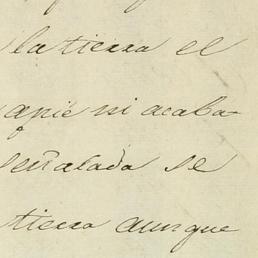 la tierra el
apie ni acaba-
señalada se
tierra aunque